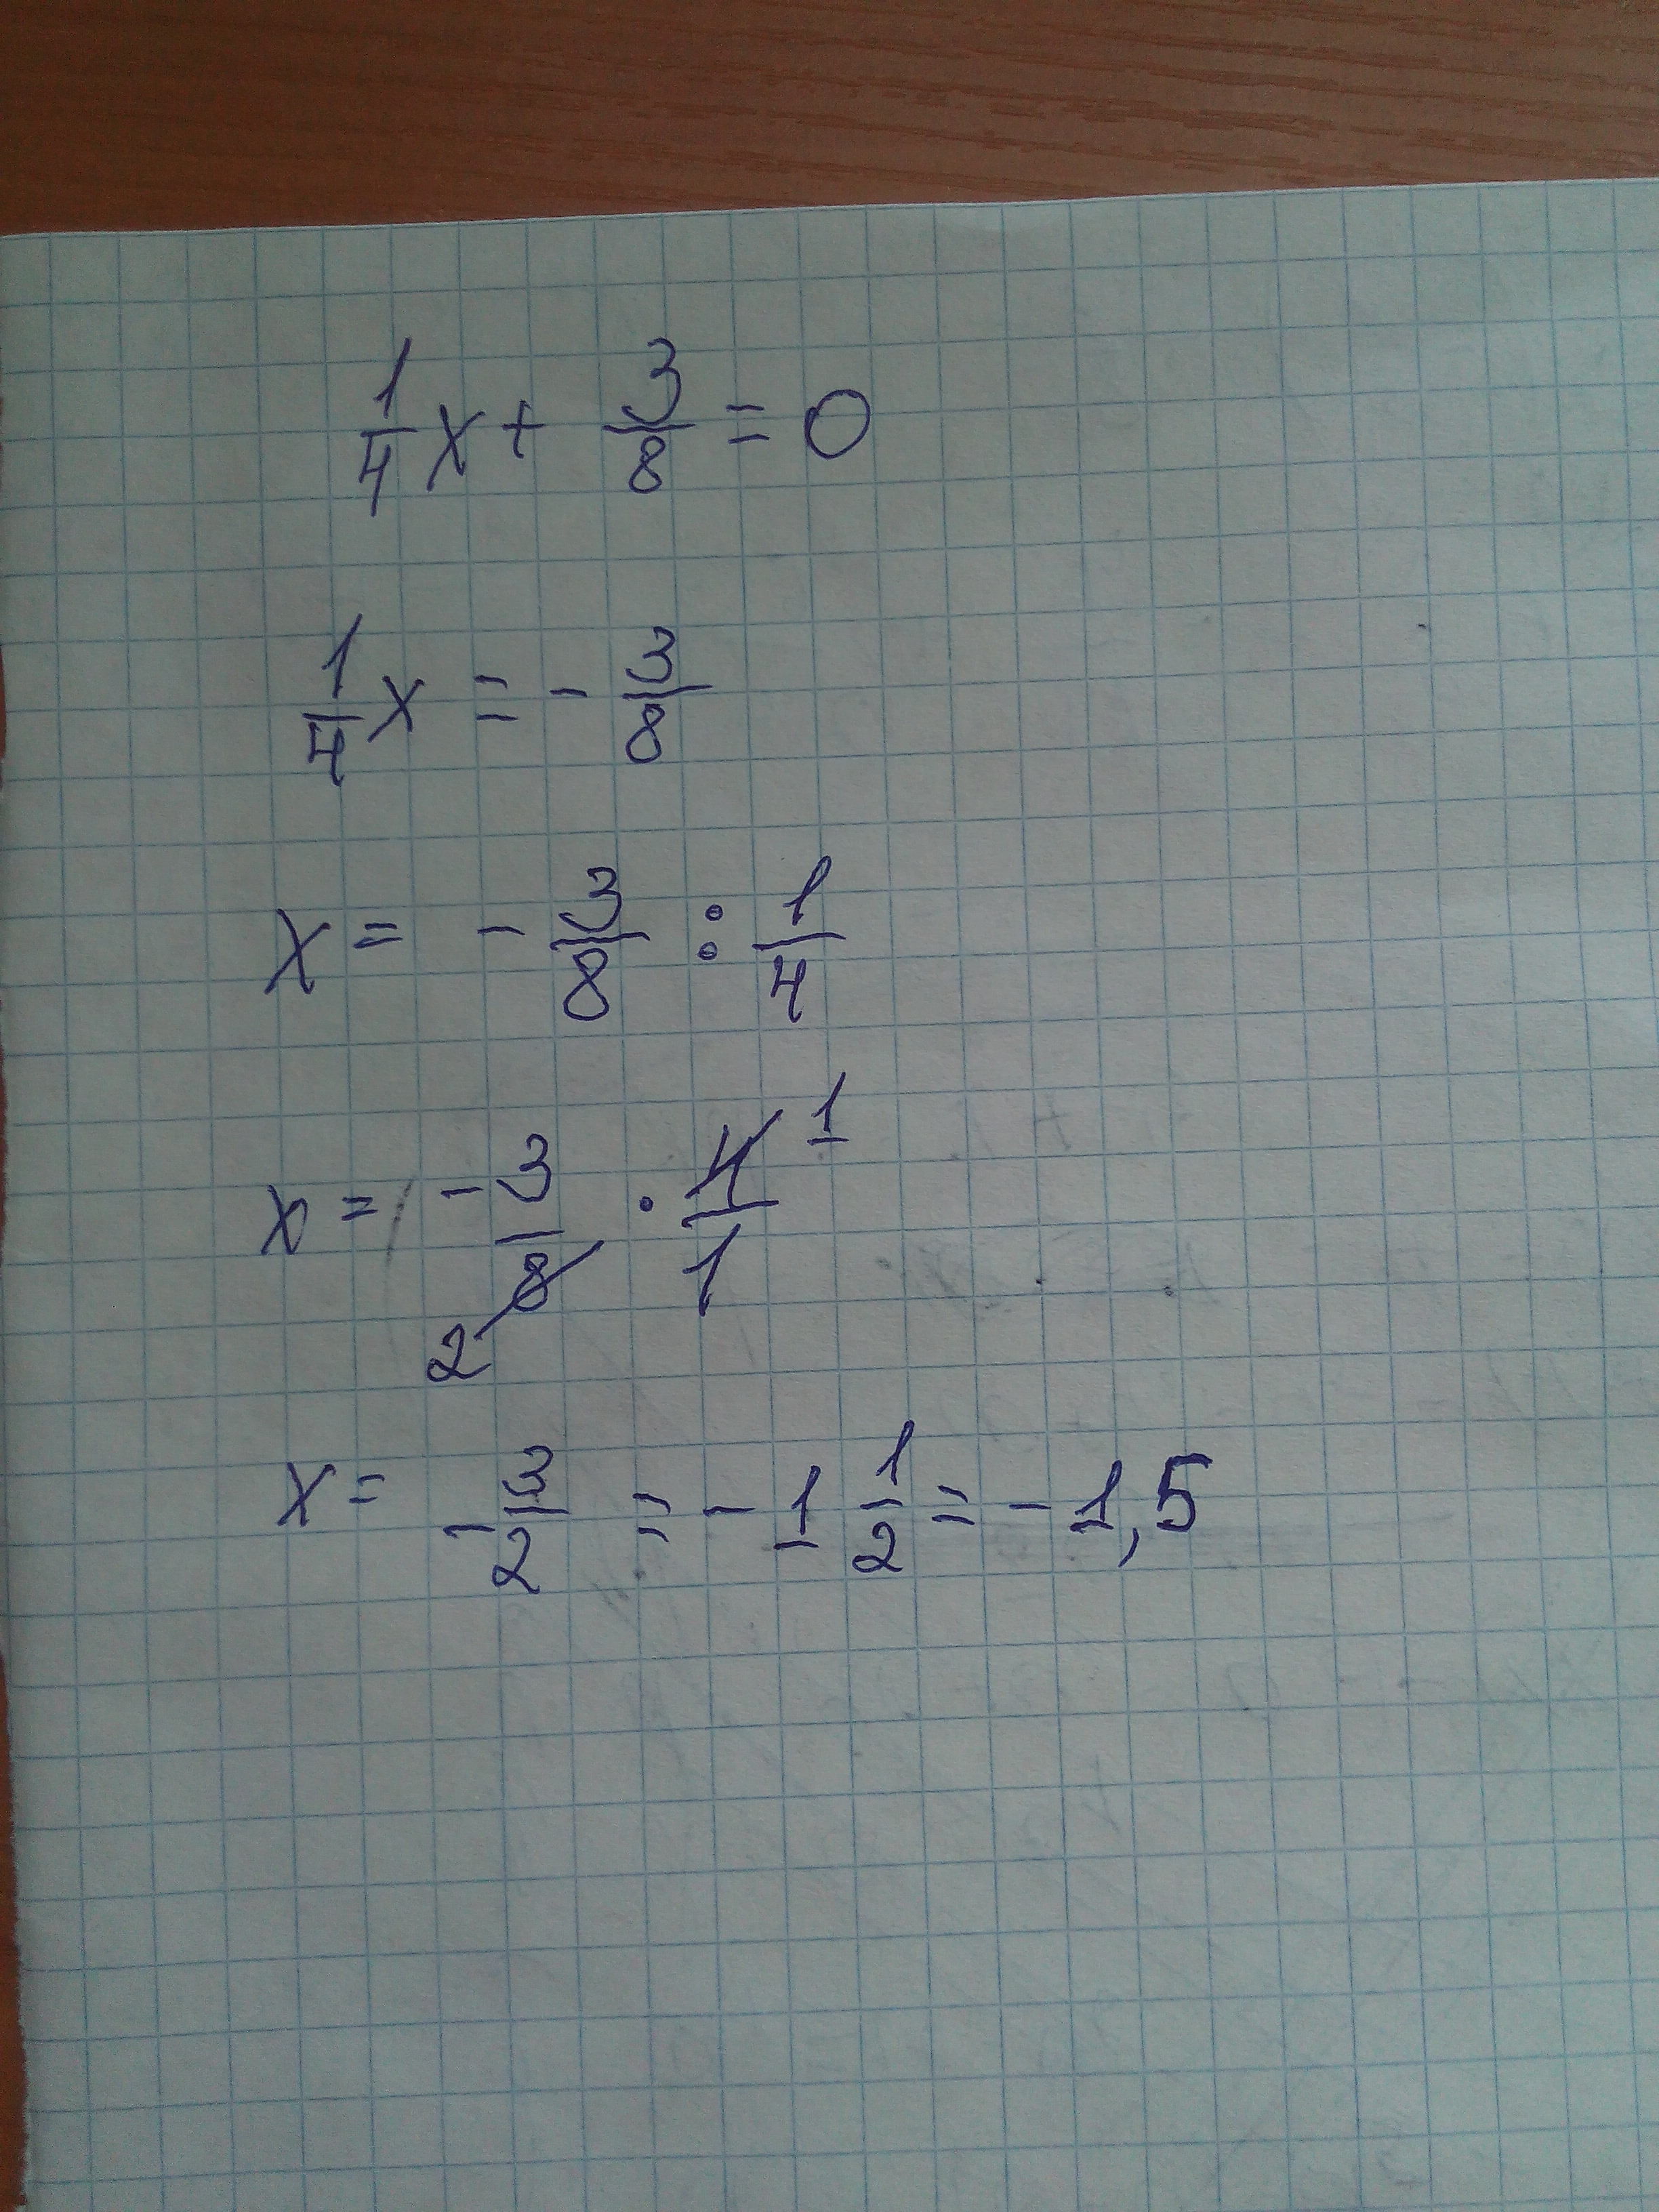 1/4 x + 3/8 = 0
1/4 x = - 3/8
x = - 3/8 : 1/4
x = - 3/8 · 4/1 1
2
x = - 3/2 = - 1 1/2 = - 1,5